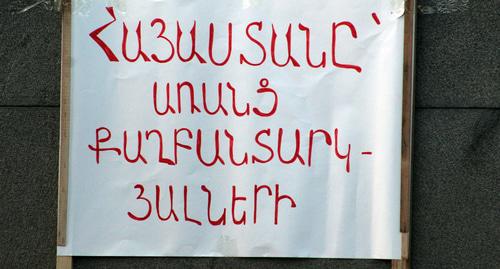 ՀԱՅԱՍՏԱՆԸ՝
ԱՌԱՆՑ
ՔԱՂԲԱՆՏԱՐԿ-
ՅԱԼՆԵՐԻ